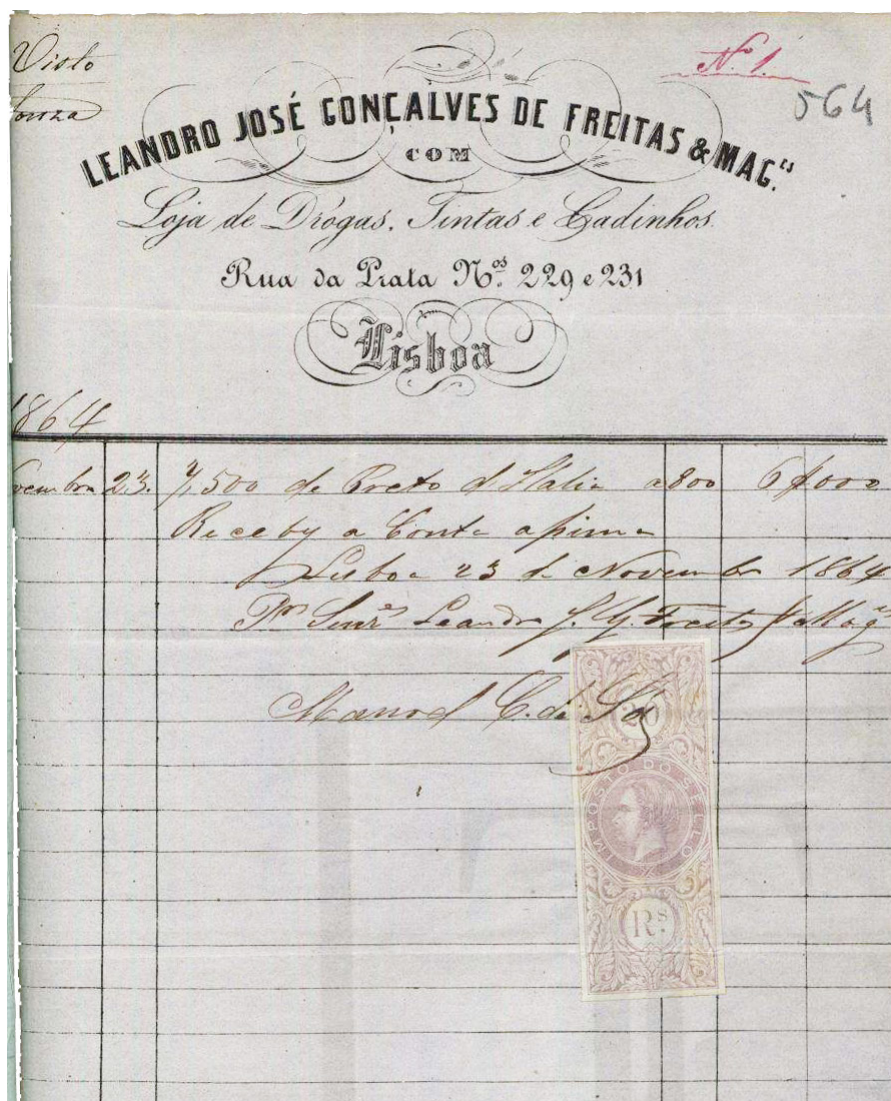 Visto
Souza
Nº 1.
564
LEANDRO JOSÉ GONÇALVES DE FREITAS & MAG.ES
COM
Loja de Drógas, Tintas e Cadinhos.
Rua da Prata Nos. 229 e 231
Lisboa
1864
vembro 23. 7,500 de Preto d'Italia a 800 6$000
Receby a Conta asima
Lisboa 23 de Novembro 1864
Por Senres Leandro J. G. Freitas & Mages
Manoel C. de Sá
20
IMPOSTO DO SELLO
Rs.